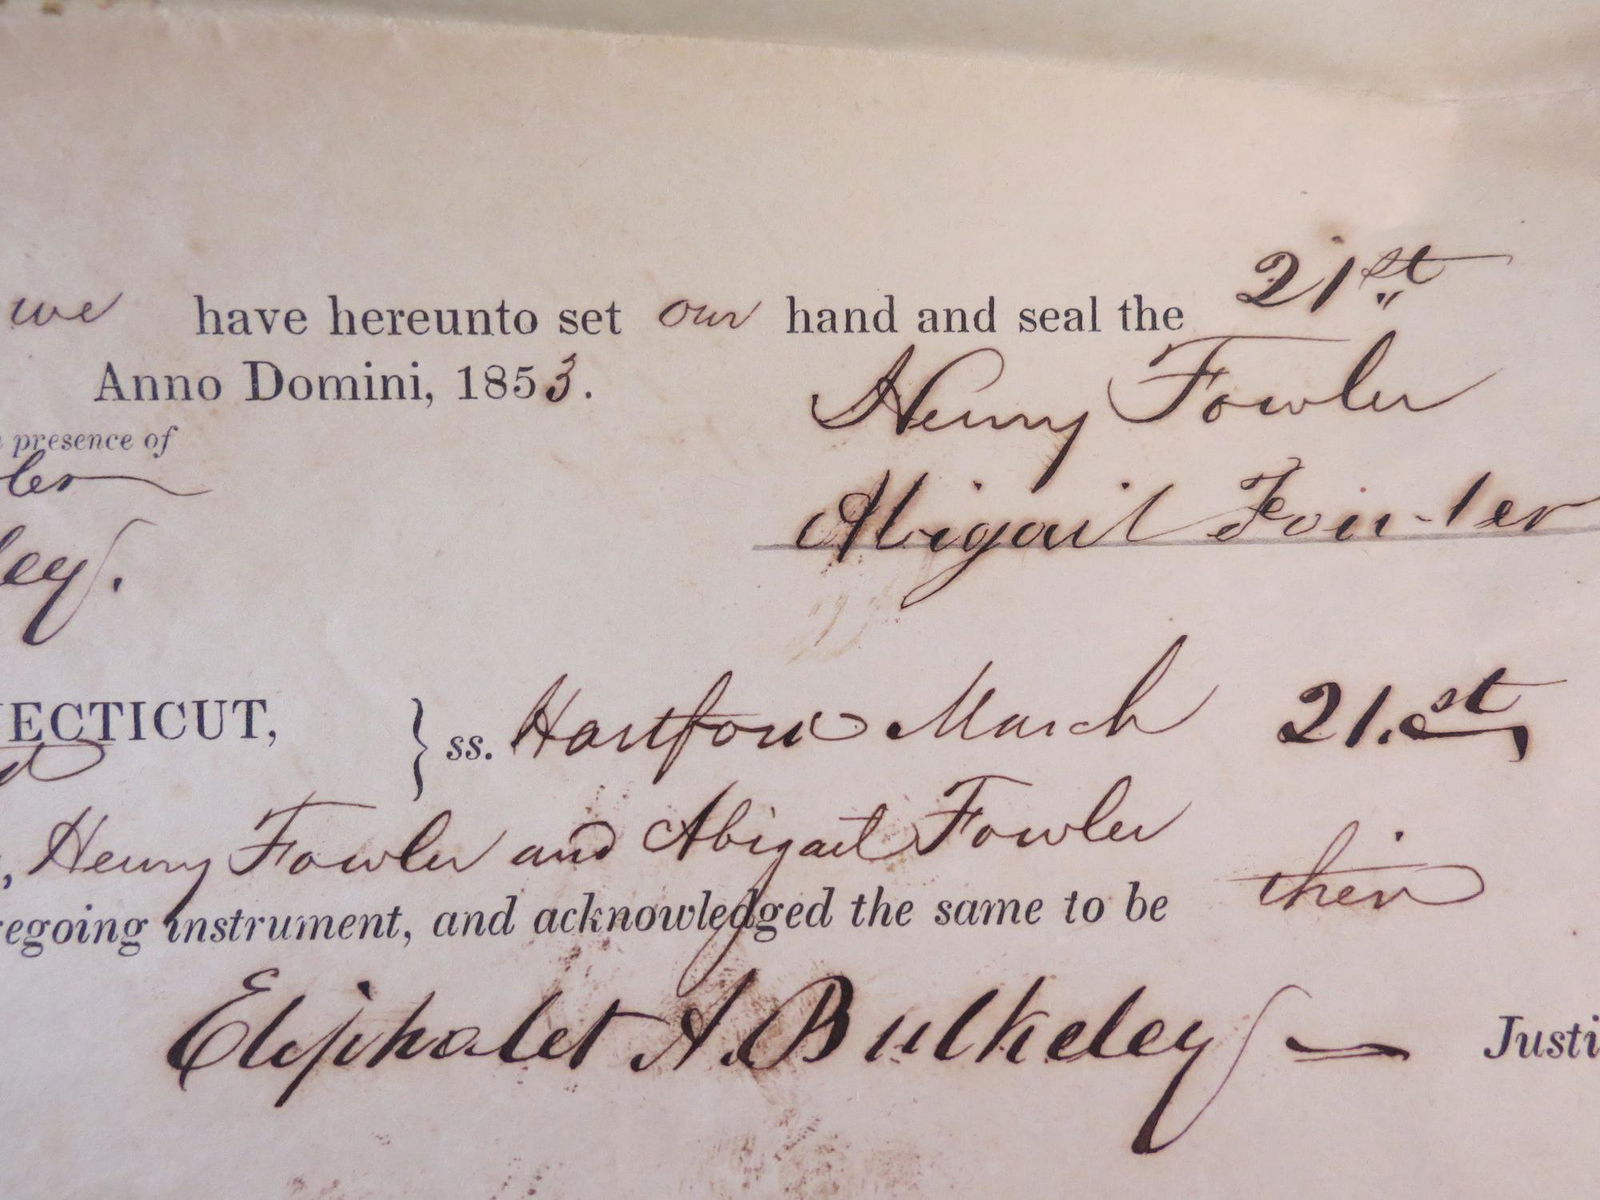 we have hereunto set our hand and seal the 21st
Anno Domini, 1853.
Henry Fowler
presence of
ler
Abigail Fowler
ley.
ECTICUT, } ss. Hartford March 21.st
d
, Henry Fowler and Abigail Fowler
egoing instrument, and acknowledged the same to be their
Eliphalet A. Bulkeley — Justi